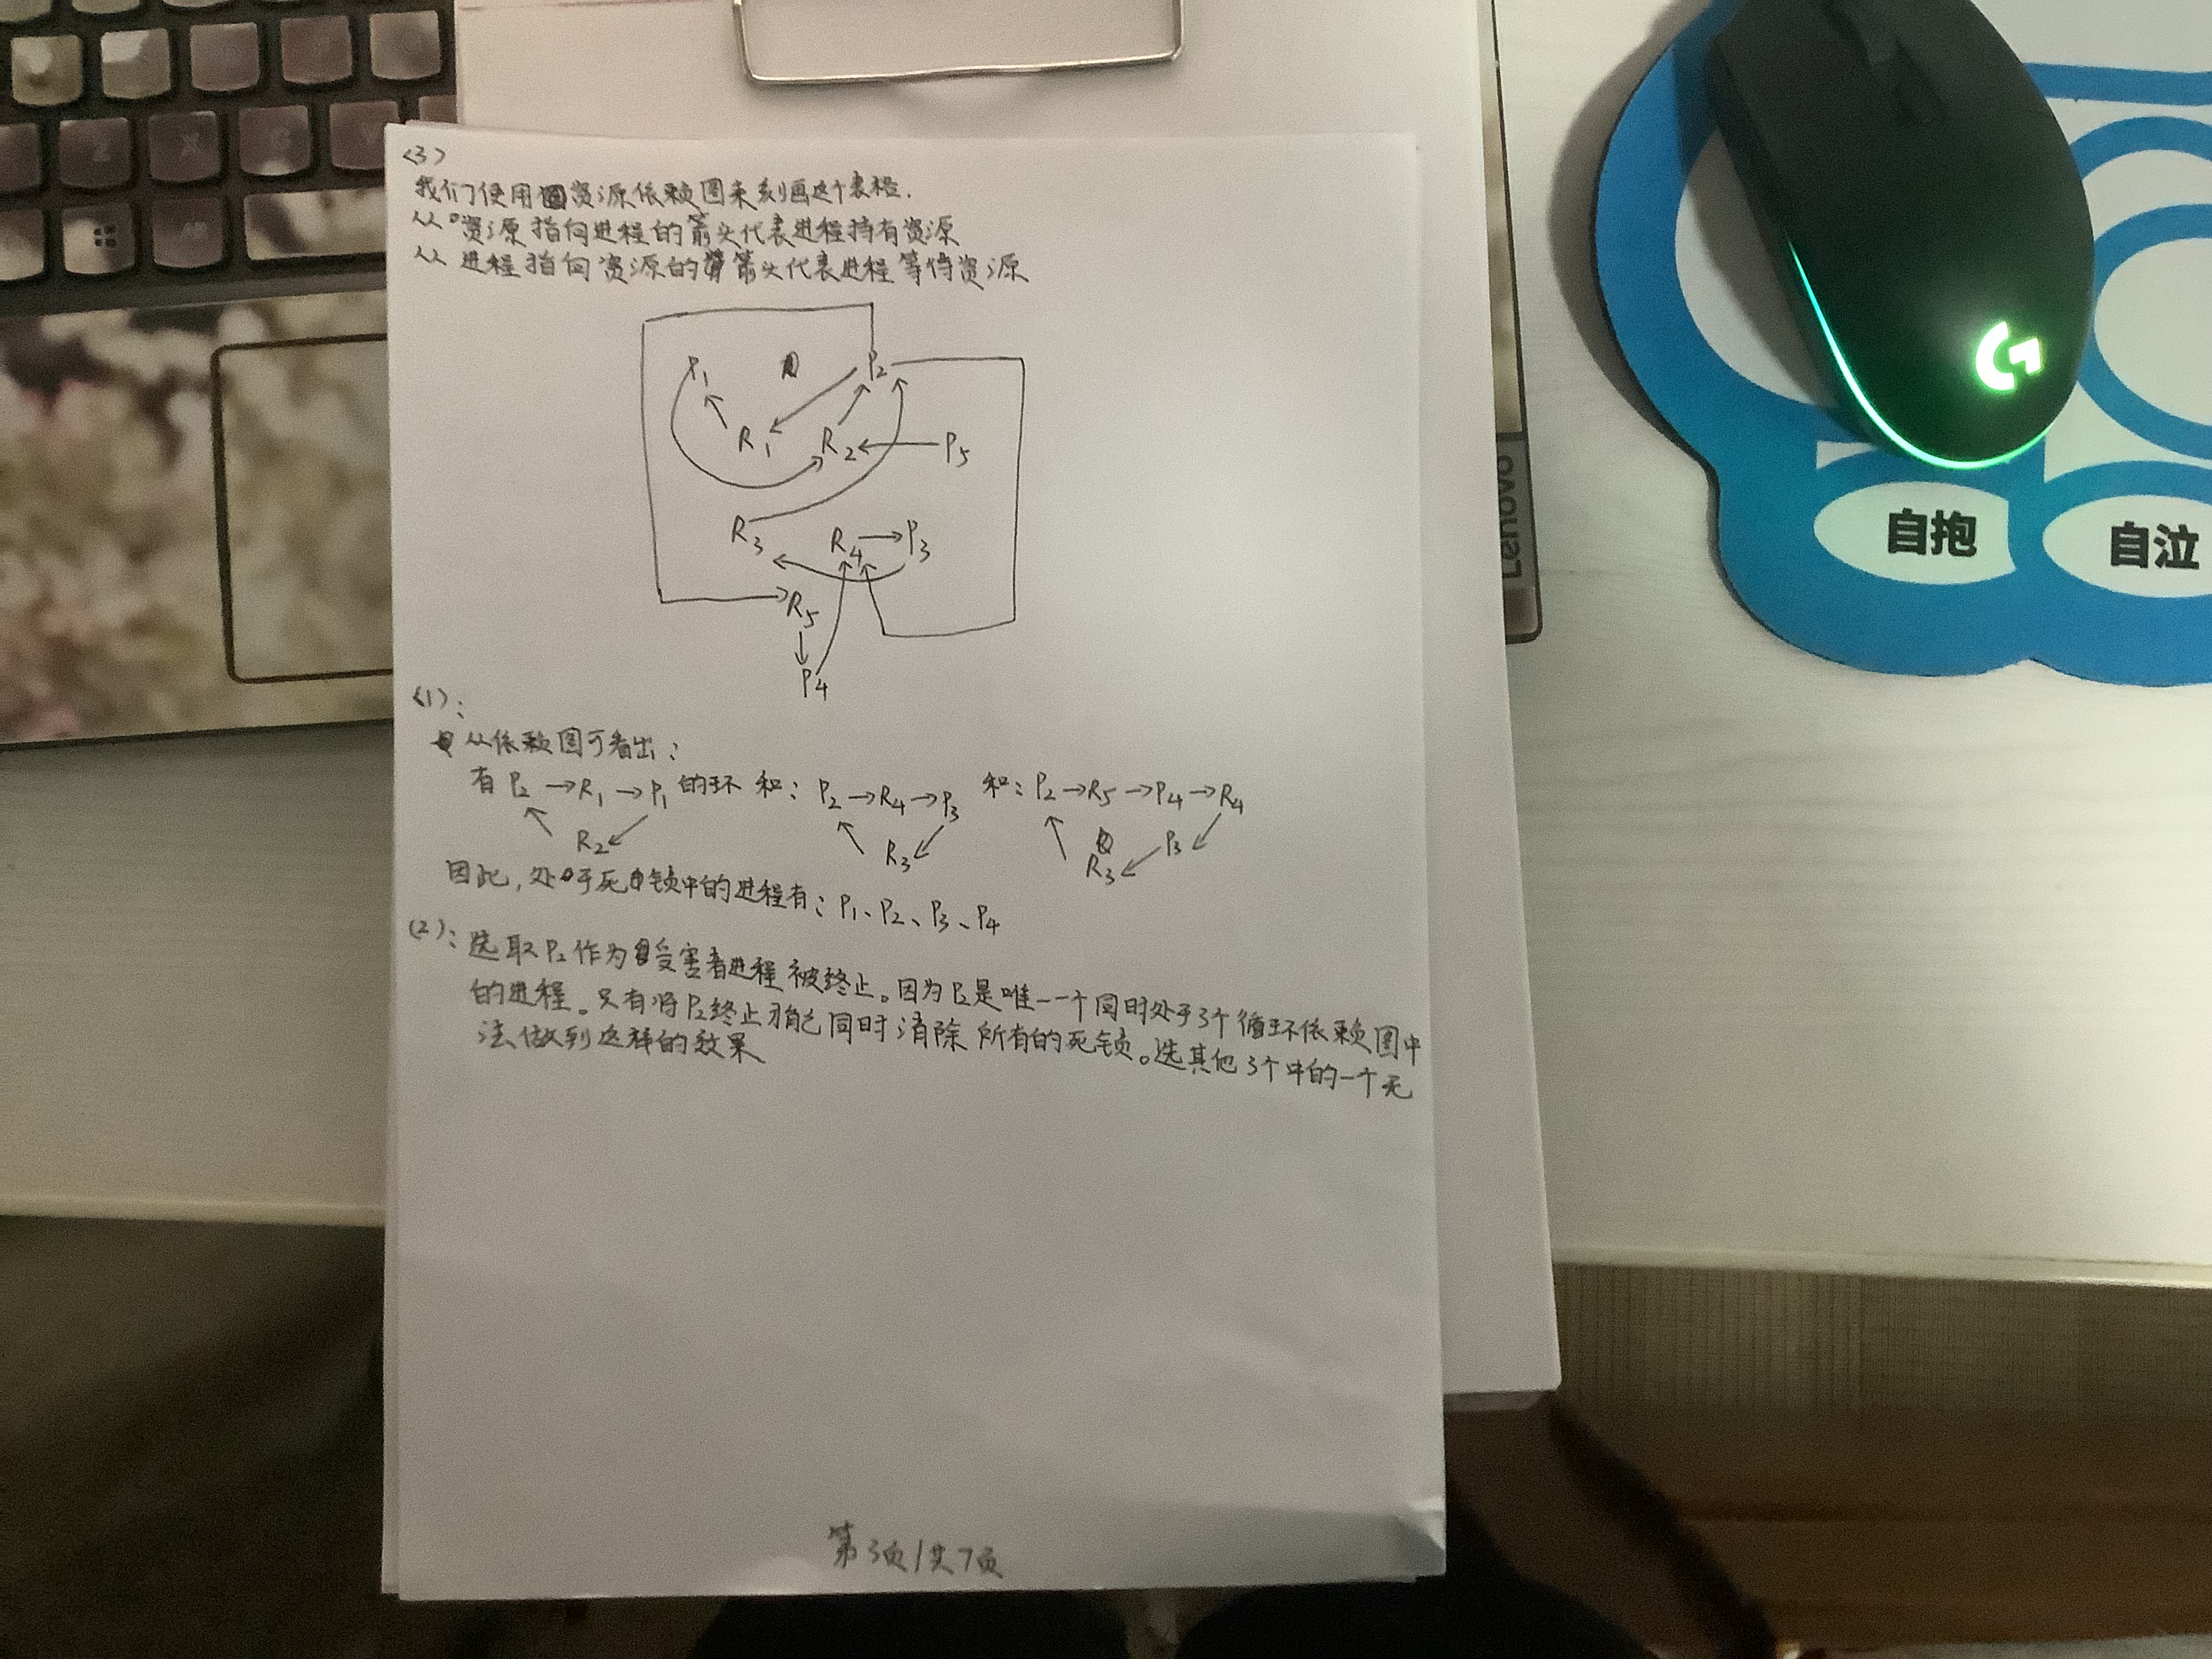 <3>
我们使用资源依赖图来刻画这个表格.
从资源指向进程的箭头代表进程持有资源
从进程指向资源的箭头代表进程等待资源
P1 P2
R1 R2 P5
R3 R4 P3
R5
P4
<1>:
从依赖图可看出:
有 P2→R1→P1 的环 和: P2→R4→P3 和: P2→R5→P4→R4
R2 R3 R3 P3
因此,处于死锁中的进程有: P1、P2、P3、P4
(2): 选取P2作为受害者进程被终止。因为P2是唯一一个同时处于3个循环依赖图中
的进程。只有将P2终止才能同时消除所有的死锁。选其他3个中的一个无
法做到这样的效果
第3页/共7页
自抱
自泣
Lenovo
G
Z
X
C
V
Alt